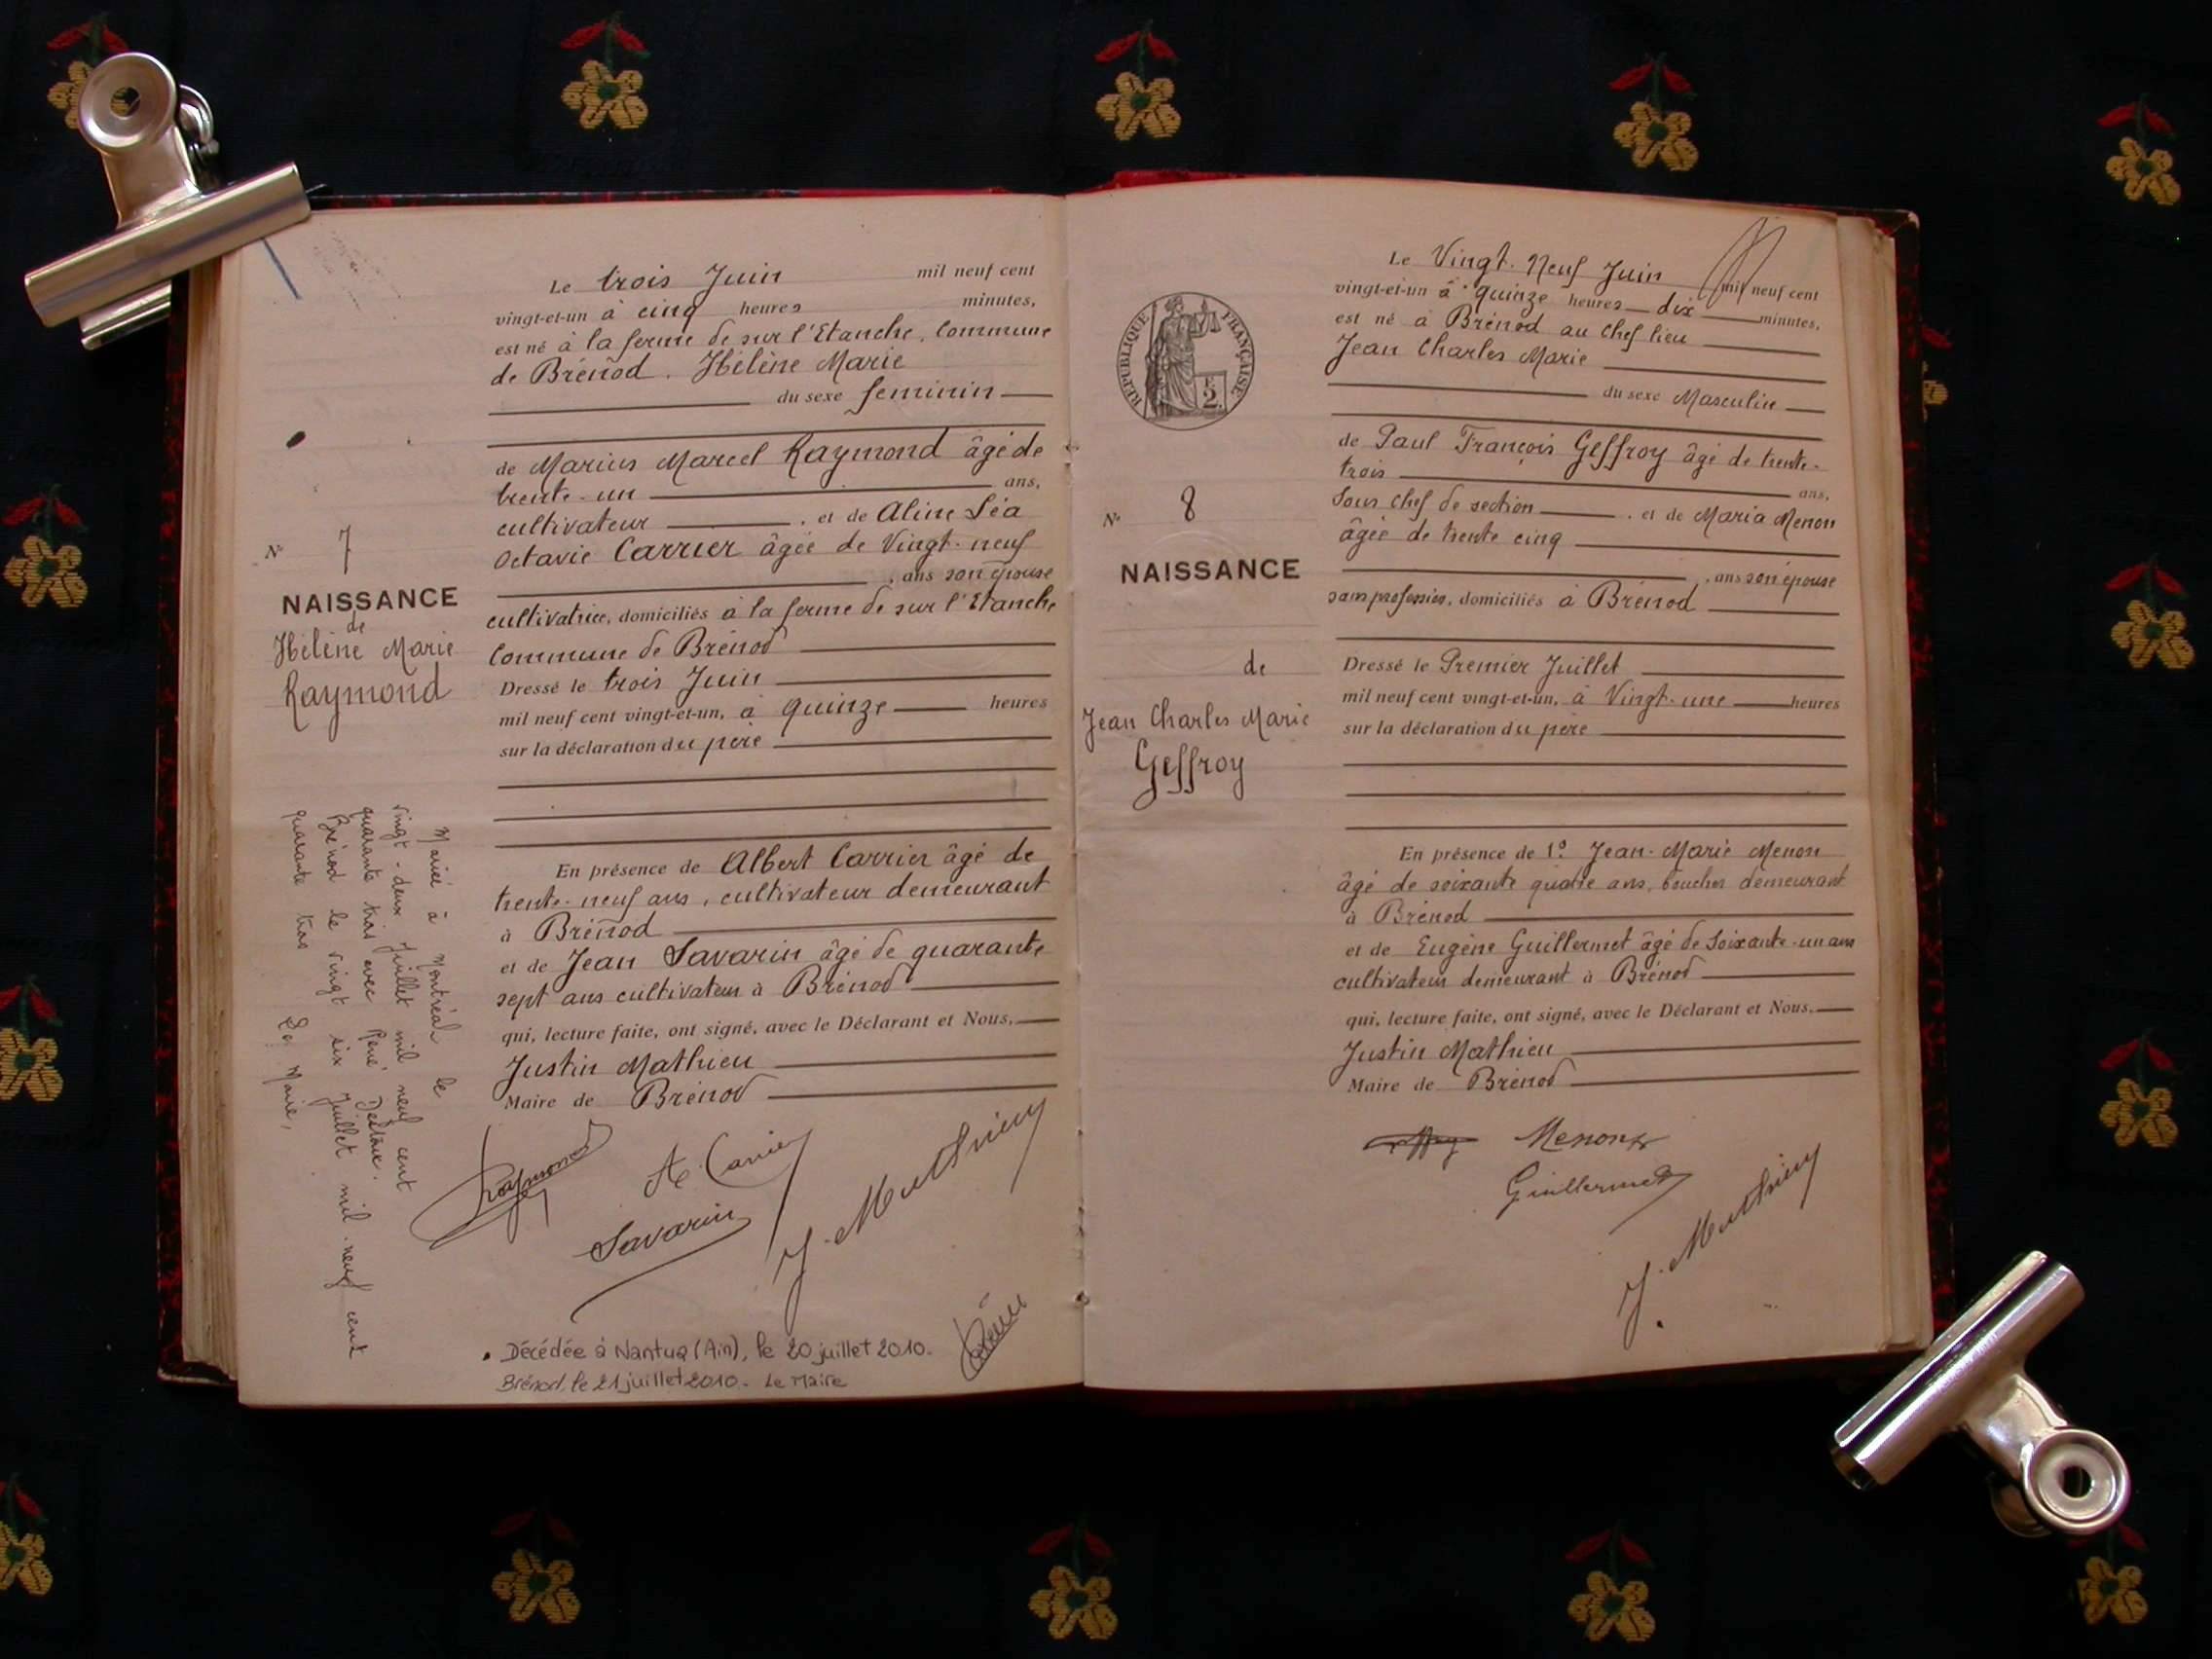 Le trois Juin mil neuf cent
vingt-et-un à cinq heures minutes,
est né à la ferme de sur l'Etanche, Commune
de Brénod. Hélène Marie
du sexe féminin
de Marius Marcel Raymond âgé de
trente-un ans,
cultivateur, et de Aline Léa
Octavie Carrier âgée de Vingt-neuf
, ans son épouse
cultivatrice, domiciliés à la ferme de sur l'Etanche
Commune de Brénod
Dressé le trois Juin
mil neuf cent vingt-et-un, à quinze heures
sur la déclaration du père
En présence de Albert Carrier âgé de
trente-neuf ans, cultivateur demeurant
à Brénod
et de Jean Savarin âgé de quarante
sept ans cultivateur à Brénod
qui, lecture faite, ont signé, avec le Déclarant et Nous,
Justin Mathieu
Maire de Brénod
N° 7
NAISSANCE
de
Hélène Marie
Raymond
Mariée à Montréal le
vingt-deux Juillet mil neuf cent
quarante trois avec René
Brénod le vingt six Juillet mil-neuf cent
quarante trois Le Maire,
Raymond
A Carrier
Savarin
J. Mathieu
• Décédée à Nantua (Ain), le 20 juillet 2010.
Brénod, le 21 juillet 2010. Le Maire
RÉPUBLIQUE FRANÇAISE
2
N° 8
NAISSANCE
de
Jean Charles Marie
Geffroy
Le Vingt-Neuf Juin mil neuf cent
vingt-et-un à quinze heures dix minutes,
est né à Brénod au Chef lieu
Jean Charles Marie
du sexe Masculin
de Paul François Geffroy âgé de trente-
trois ans,
Sous Chef de section, et de Maria Menon
âgée de trente cinq
, ans son épouse
sans profession, domiciliés à Brénod
Dressé le Premier Juillet
mil neuf cent vingt-et-un, à Vingt-une heures
sur la déclaration du père
En présence de 1° Jean-Marie Menon
âgé de soixante quatre ans, boucher demeurant
à Brénod
et de Eugène Guillermet âgé de Soixante-un ans
cultivateur demeurant à Brénod
qui, lecture faite, ont signé, avec le Déclarant et Nous,
Justin Mathieu
Maire de Brénod
Menon
Guillermet
J. Mathieu